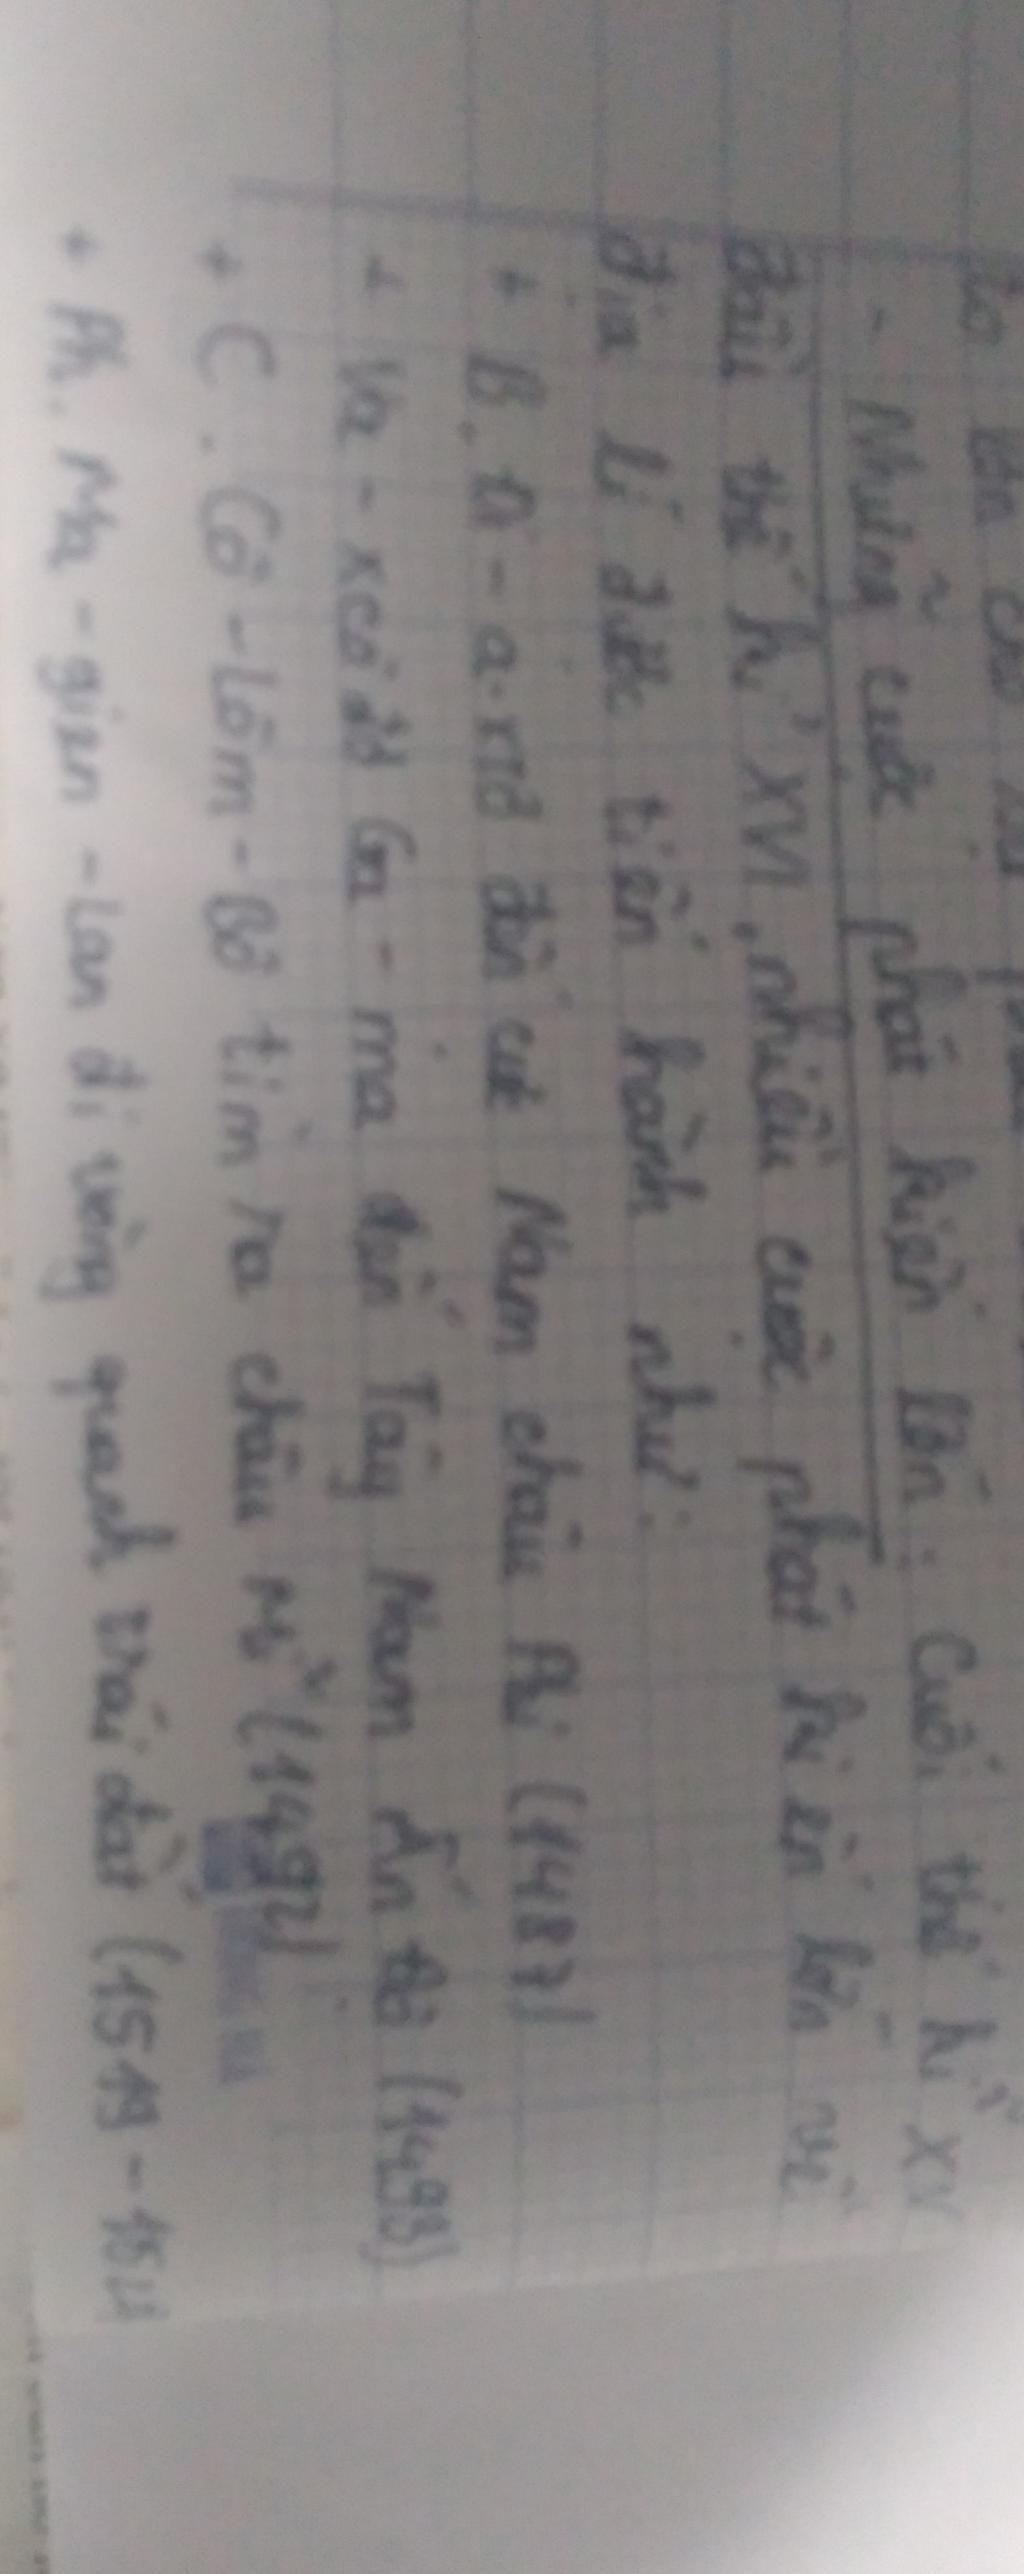 - Những cuộc phát kiến lớn: Cuối thế kỉ XV
đầu thế kỉ XVI, nhiều cuộc phát kiến lớn về
địa lí được tiến hành như:
+ B. Đi-a-xơ đến cực Nam châu Phi (1487)
+ Va-xcô đơ Ga-ma đến Tây Nam Ấn Độ (1498)
+ C. Cô-lôm-bô tìm ra châu Mĩ (1492)
+ Ph. Ma-gien-lan đi vòng quanh trái đất (1519-